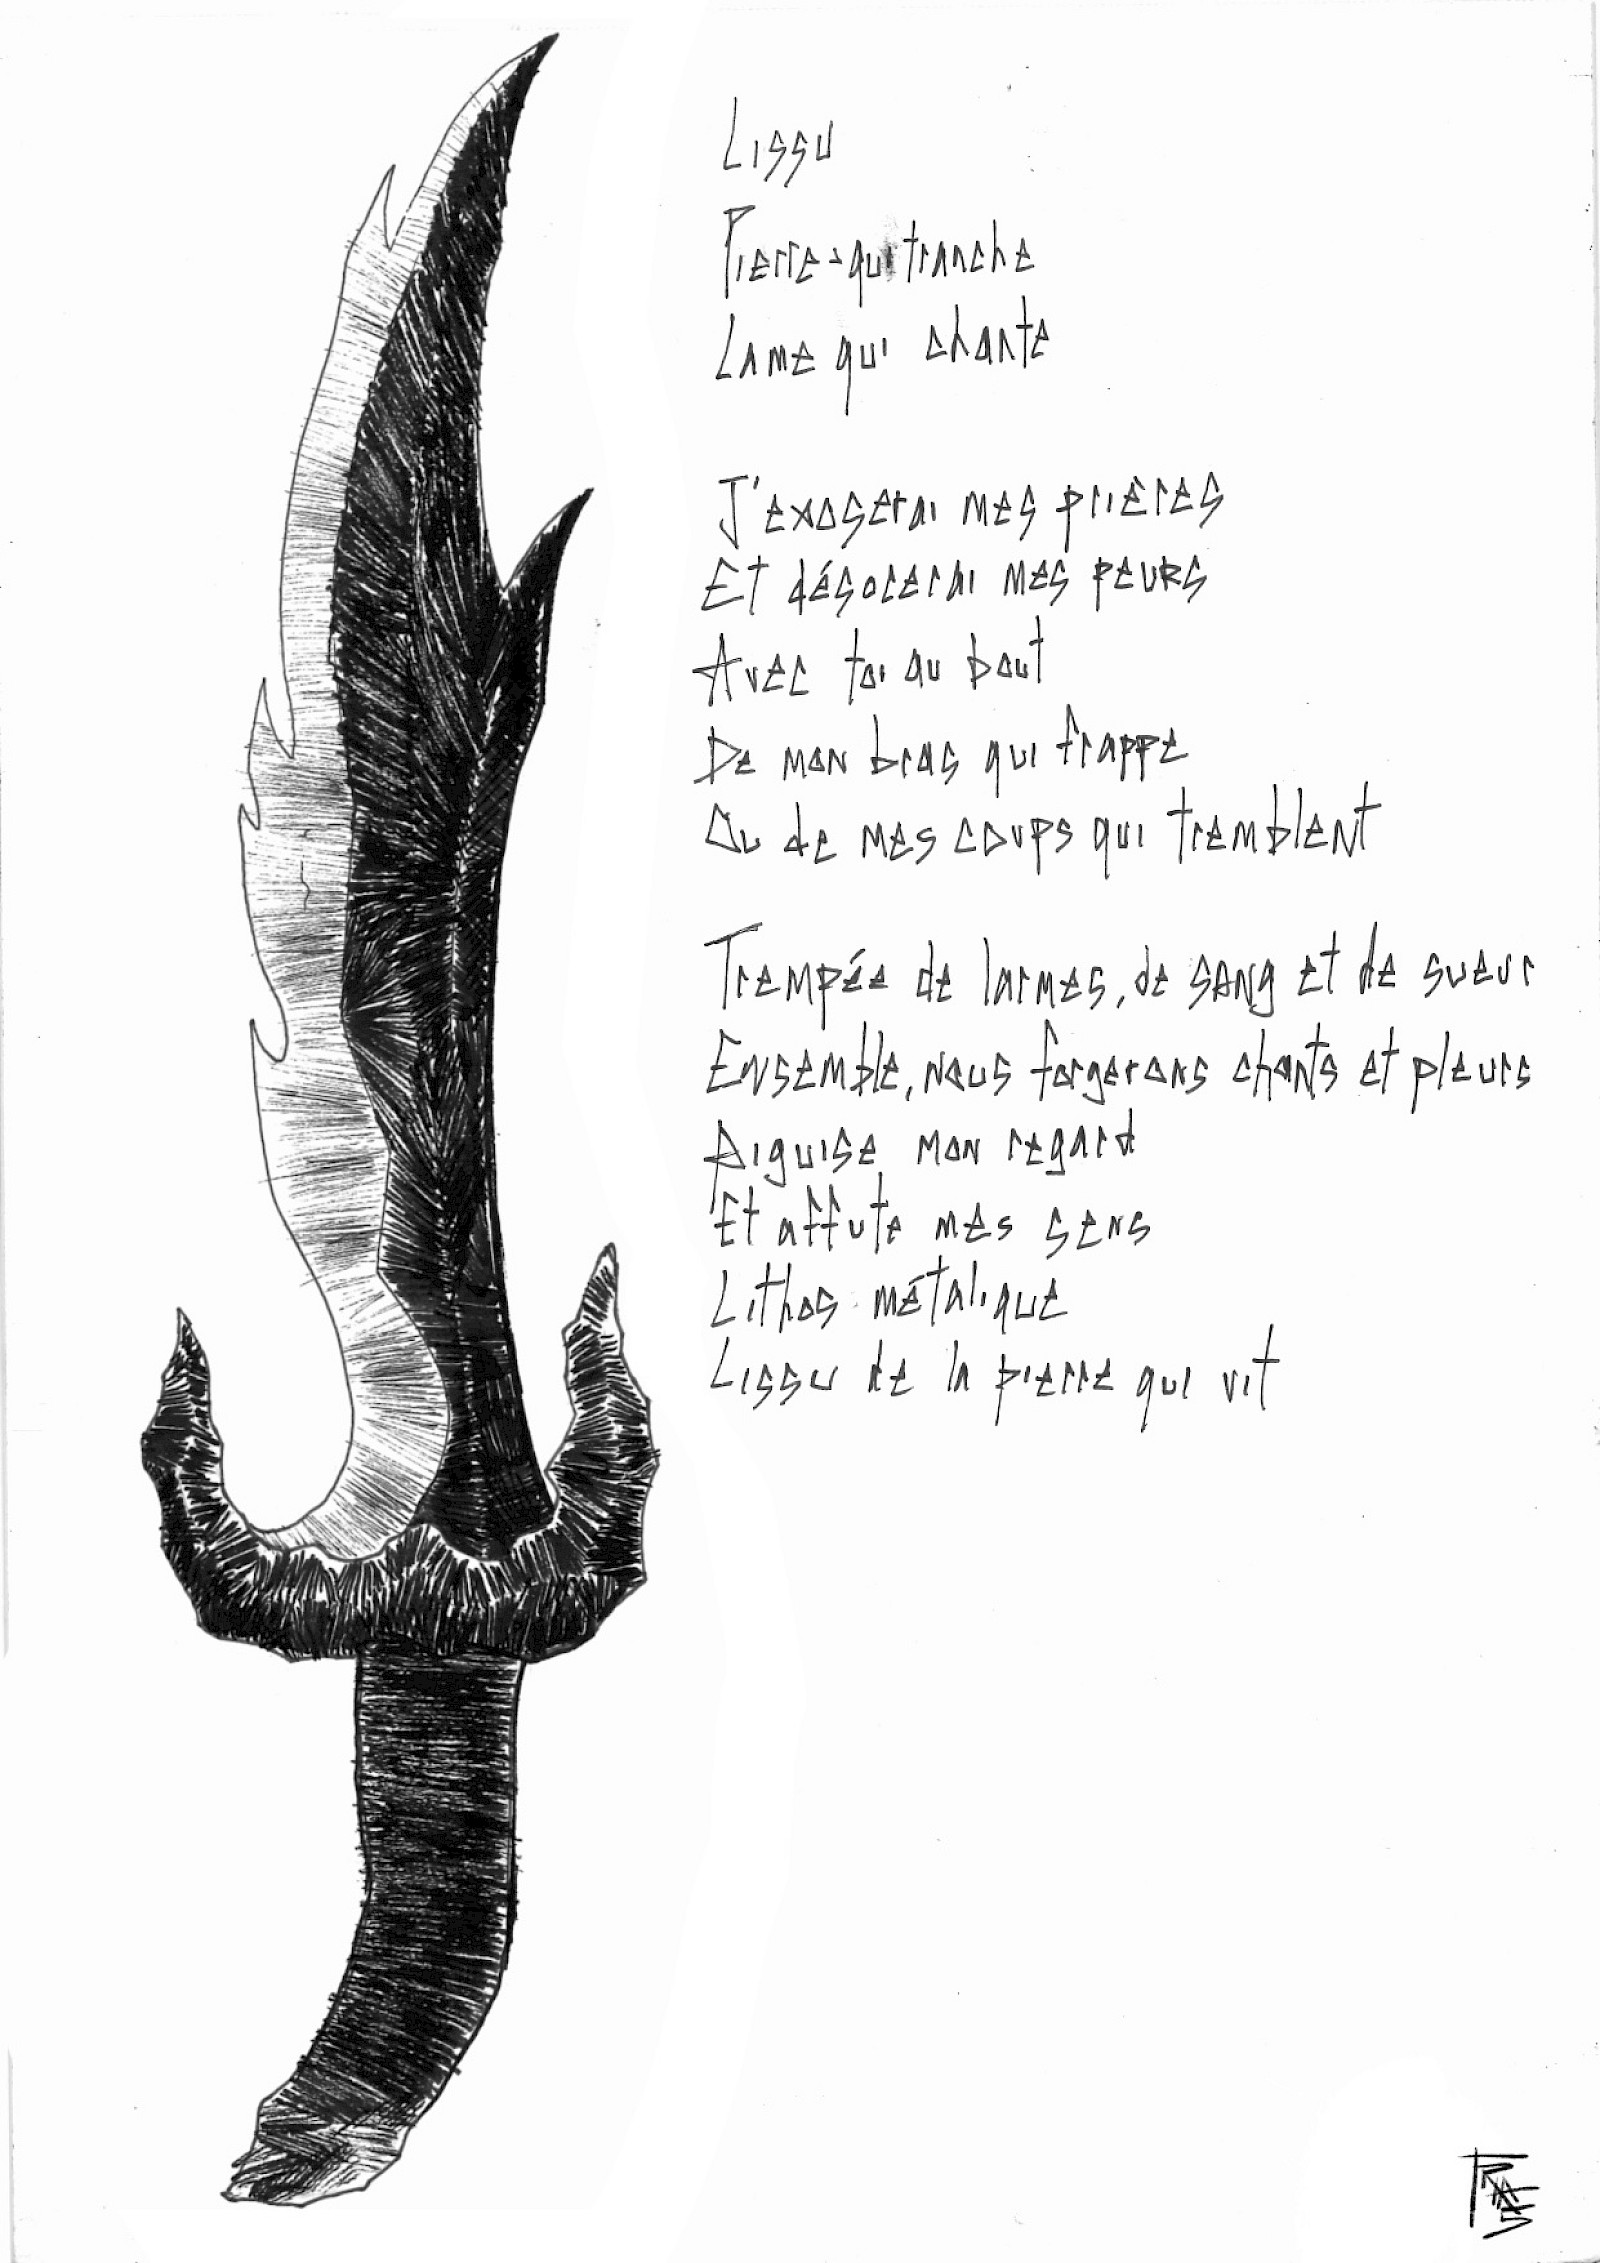 Lissu
Pierre-qui tranche
Lame qui chante
J'exoserai mes prières
Et désorerai mes peurs
Avec toi au bout
De mon bras qui frappe
Ou de mes coups qui tremblent
Trempée de larmes, de sang et de sueur
Ensemble, nous forgerons chants et pleurs
Aiguise mon regard
Et affute mes sens
Lithos métalique
Lissu de la pierre qui vit